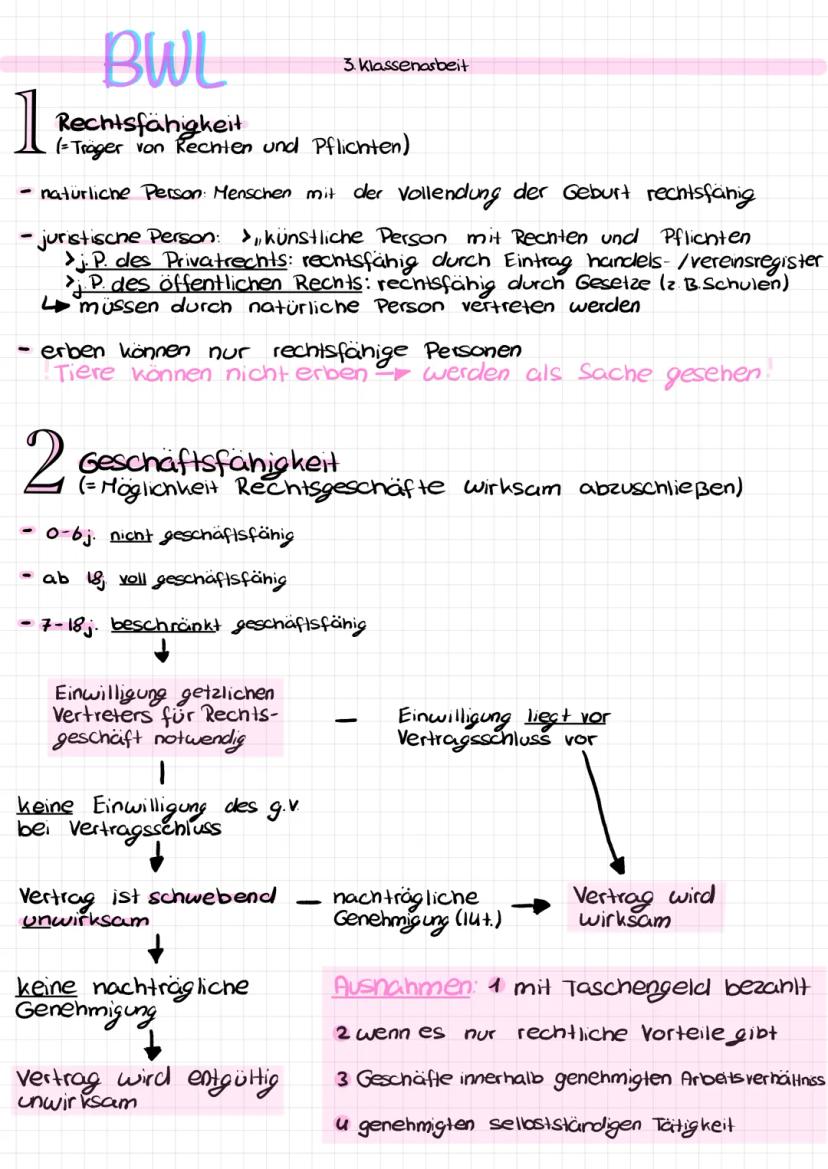 BWL
3. Klassenarbeit
1 Rechtsfähigkeit
(=Träger von Rechten und Pflichten)
- natürliche Person: Menschen mit der Vollendung der Geburt rechtsfähig
- juristische Person: >„künstliche Person mit Rechten und Pflichten
>j. P. des Privatrechts: rechtsfähig durch Eintrag handels-/vereinsregister
>j. P. des öffentlichen Rechts: rechtsfähig durch Gesetze (z.B. Schulen)
↳ müssen durch natürliche Person vertreten werden
- erben können nur rechtsfähige Personen
! Tiere können nicht erben → werden als Sache gesehen!
2 Geschäftsfähigkeit
(=Möglichkeit Rechtsgeschäfte wirksam abzuschließen)
- 0-6j. nicht geschäftsfähig
- ab 18j voll geschäftsfähig
- 7-18j. beschränkt geschäftsfähig
Einwilligung getzlichen
Vertreters für Rechts-
geschäft notwendig
— Einwilligung liegt vor
Vertragsschluss vor
keine Einwilligung des g.V.
bei Vertragsschluss
Vertrag ist schwebend
unwirksam
— nachträgliche
Genehmigung (1Ut.)
→ Vertrag wird
wirksam
keine nachträgliche
Genehmigung
Vertrag wird entgültig
unwirksam
Ausnahmen: 1 mit Taschengeld bezahlt
2 wenn es nur rechtliche Vorteile gibt
3 Geschäfte innerhalb genehmigten Arbeitsverhältniss
4 genehmigten selbstständigen Tätigkeit